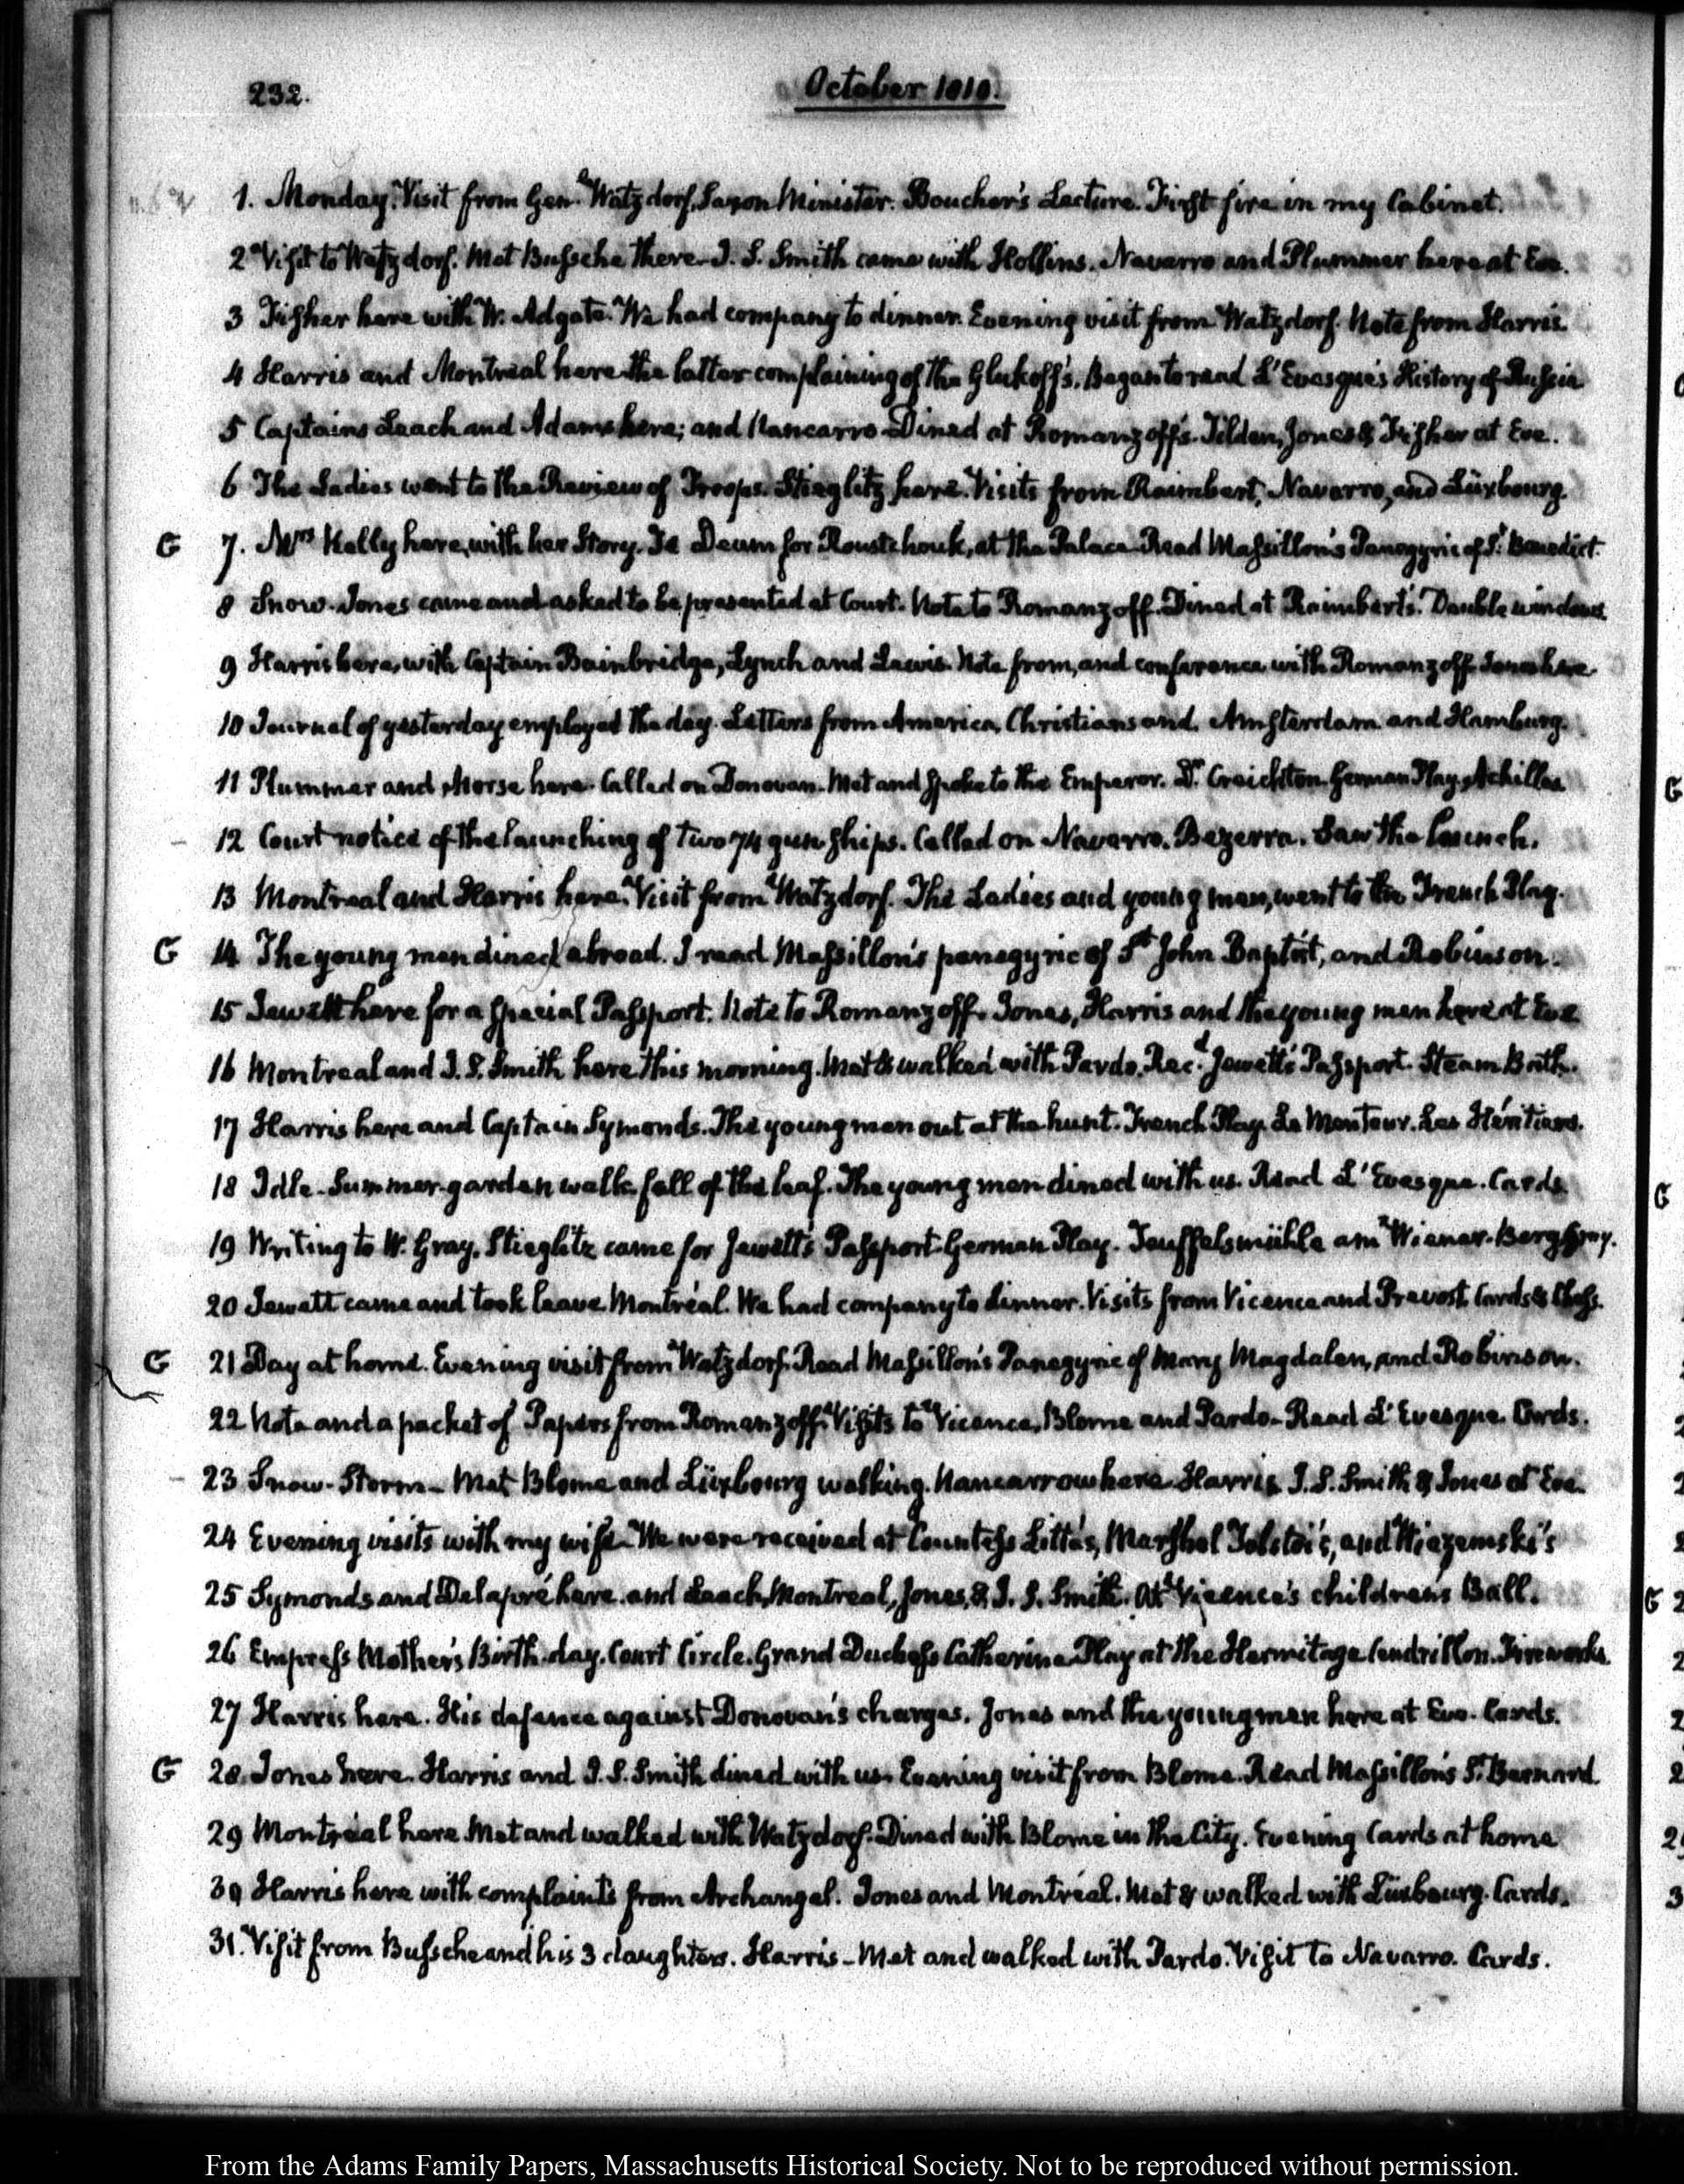 232.
October 1810.
1. Monday. Visit from Genl. Watzdorf, Saxon Minister. Boucher's Lecture. First fire in my Cabinet.
2 Visit to Watzdorf. Met Bussche there. J. S. Smith came with Hollins. Navarro and Plummer here at Eve.
3 Fisher here with W. Adgate. We had company to dinner. Evening visit from Watzdorf. Note from Harris.
4 Harris and Montréal here the latter complaining of the Glukoff's. Began to read L'Evesque's History of Russia
5 Captains Leach and Adams here; and Nancarro Dined at Romanzoff's. Tilden, Jones & Fisher at Eve.
6 The Ladies went to the Review of Troops. Stieglitz here. Visits from Raimbert, Navarro, and Lüxbourg.
G 7. Mrs Kelly here, with her Story. Te Deum for Roustchouk, at the Palace. Read Massillon's Panegyric of St. Benedict.
8 Snow. Jones came and asked to be presented at Court. Note to Romanzoff. Dined at Raimbert's. Double windows
9 Harris here, with Captain Bainbridge, Lynch and Lewis. Note from, and conference with Romanzoff. Jones here.
10 Journal of yesterday employed the day. Letters from America, Christiansand, Amsterdam and Hamburg.
11 Plummer and Morse here. Called on Donovan. Met and spoke to the Emperor. Dr. Creichton. German Play, Achilles
12 Court notice of the launching of two 74 gun ships. Called on Navarro. Bezerra. Saw the launch.
13 Montreal and Harris here. Visit from Watzdorf. The Ladies and young men, went to the French Play.
G 14 The young men dined abroad. I read Massillon's panegyric of St John Baptist, and Robinson.
15 Jewett here for a special Passport. Note to Romanzoff. Jones, Harris and the young men here at Eve
16 Montreal and J. S. Smith here this morning. Met & walked with Pardo. Recd. Jewett's Passport. Steam Bath.
17 Harris here and Captain Symonds. The young men out at the hunt. French Play. Le Menteur. Les Héritiers.
18 Idle. Summer-garden walk. fall of the leaf. The young men dined with us. Read L'Evesque. Cards
19 Writing to W. Gray. Stieglitz came for Jewett's Passport. German Play. Teuffelsmühle am Wiener-Berg.
20 Jewett came and took leave. Montréal. We had company to dinner. Visits from Vicence and Prevost. Cards & Chess.
G 21 Day at home. Evening visit from Watzdorf. Read Massillon's Panegyric of Mary Magdalen, and Robinson.
22 Note and a packet of Papers from Romanzoff. Visits to Vicence, Blome and Pardo. Read L'Evesque. Cards.
23 Snow-Storm. Met Blome and Lüxbourg walking. Nancarrow here. Harris. J. S. Smith & Jones at Eve.
24 Evening visits with my wife. We were received at Countess Litta's, Marshal Tolstoi's, and Wiazemski's
25 Symonds and Delapré here. and Leach, Montreal, Jones, & J. S. Smith. At Vicence's children's Ball.
26 Empress Mother's Birth-day. Court Circle. Grand Duchess Catherine. Play at the Hermitage Cendrillon. Fireworks.
27 Harris here. His defence against Donovan's charges. Jones and the young men here at Eve. Cards.
G 28. Jones here. Harris and J. S. Smith dined with us. Evening visit from Blome. Read Massillon's St. Bernard.
29 Montréal here. Met and walked with Watzdorf. Dined with Blome in the City. Evening Cards at home
30 Harris here with complaints from Archangel. Jones and Montréal. Met & walked with Lüxbourg. Cards.
31. Visit from Bussche and his 3 daughters. Harris - Met and walked with Pardo. Visit to Navarro. Cards.
From the Adams Family Papers, Massachusetts Historical Society. Not to be reproduced without permission.